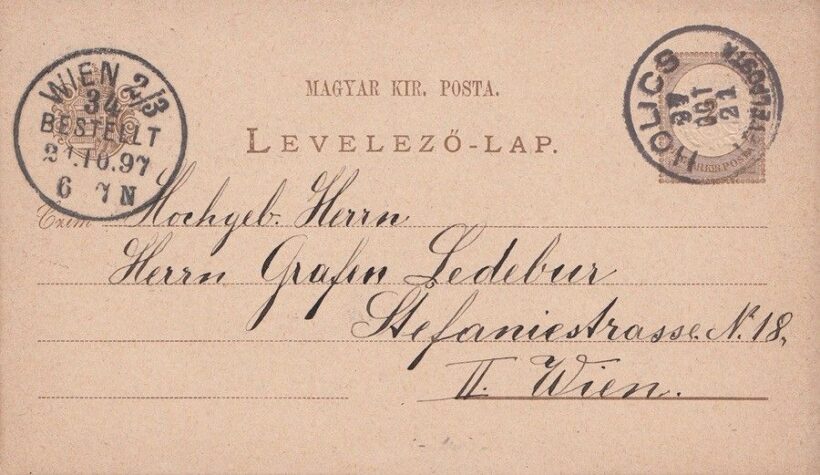 MAGYAR KIR. POSTA.
LEVELEZŐ-LAP.
WIEN 2/3
34
BESTELLT
21.10.97
6 7N
HOLICS
97
OKT
21
Czim
Hochgeb. Herrn
Herrn Grafen Ledebur
Stefaniestrasse. № 18,
II. Wien.